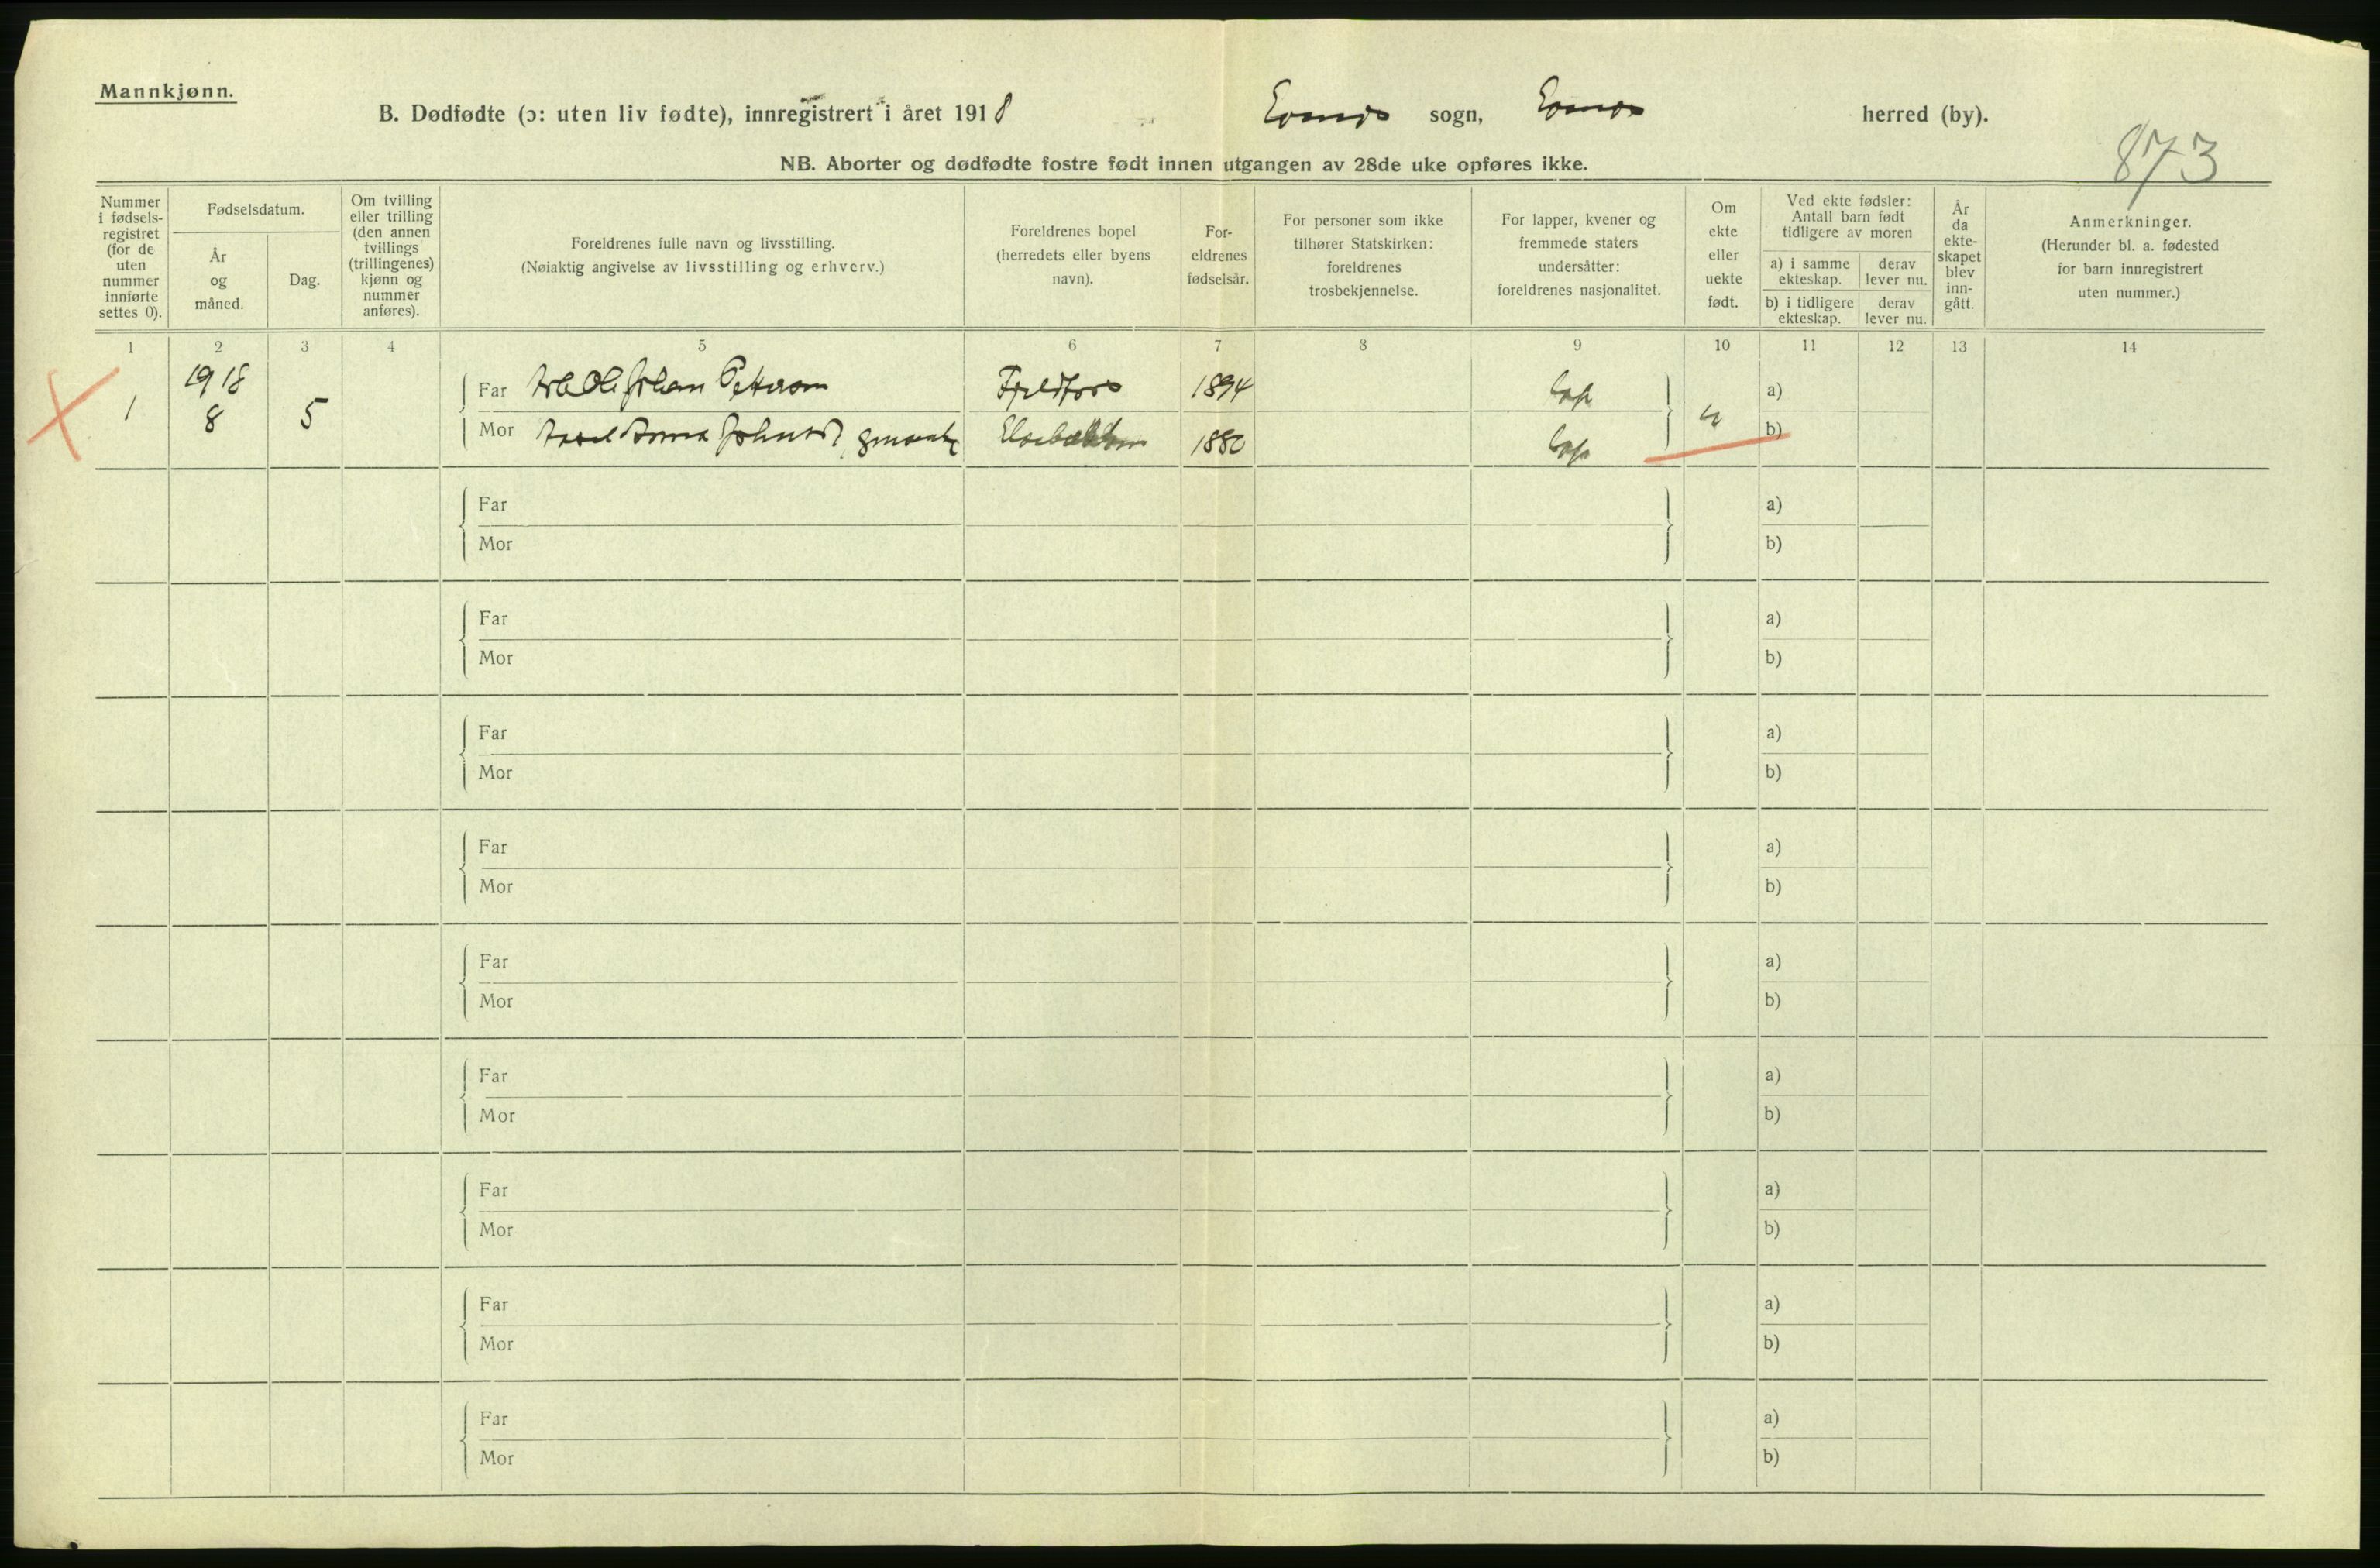 Mannkjønn.
B. Dødfødte (ɔ: uten liv fødte), innregistrert i året 1918 Evenes sogn, Evenes herred (by).
873
NB. Aborter og dødfødte fostre født innen utgangen av 28de uke opføres ikke.
Nummer
i fødsels-
registret
(for de
uten
nummer
innførte
settes 0).
Fødselsdatum.
År
og
måned.
Dag.
Om tvilling
eller trilling
(den annen
tvillings
(trillingenes)
kjønn og
nummer
anføres).
Foreldrenes fulle navn og livsstilling.
(Nøiaktig angivelse av livsstilling og erhverv.)
Foreldrenes bopel
(herredets eller byens
navn).
For-
eldrenes
fødselsår.
For personer som ikke
tilhører Statskirken:
foreldrenes
trosbekjennelse.
For lapper, kvener og
fremmede staters
undersåtter:
foreldrenes nasjonalitet.
Om
ekte
eller
uekte
født.
Ved ekte fødsler:
Antall barn født
tidligere av moren
a) i samme
ekteskap.
derav
lever nu.
b) i tidligere
ekteskap.
derav
lever nu.
År
da
ekte-
skapet
blev
inn-
gått.
Anmerkninger.
(Herunder bl. a. fødested
for barn innregistrert
uten nummer.)
1 2 3 4 5 6 7 8 9 10 11 12 13 14
1 1918 8 5
Far Ole Johan Petterson 1894 lap a)
Mor Anna 1880 lap u b)
Far a)
Mor b)
Far a)
Mor b)
Far a)
Mor b)
Far a)
Mor b)
Far a)
Mor b)
Far a)
Mor b)
Far a)
Mor b)
Far a)
Mor b)
Far a)
Mor b)